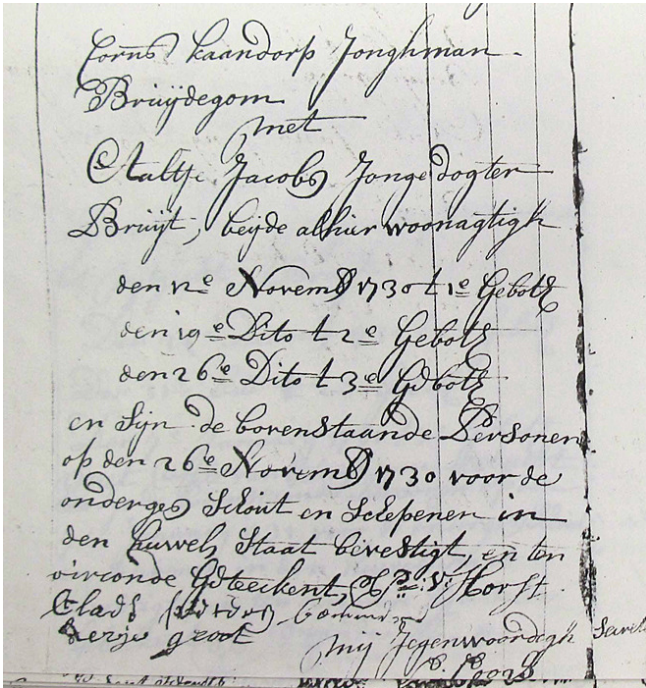 Corns Kaandorp Jonghman
Bruijdegom
met
Aaltje Jacobs Jonge dogter
Bruijt, beijde alhier woonagtigh
den 12e Novemb 1730 t 1e Gebodt
den 19e Dito t 2e Gebodt
den 26e Dito t 3e Gebodt
en Sijn de bovenstaande Personen
op den 26e Novemb 1730 voor de
onderges Schout en Schepenen in
den huwel Staat bevestigt, en ten
oirconde Geteekent, Horst
Claas
groot
mij Jegenwoordigh